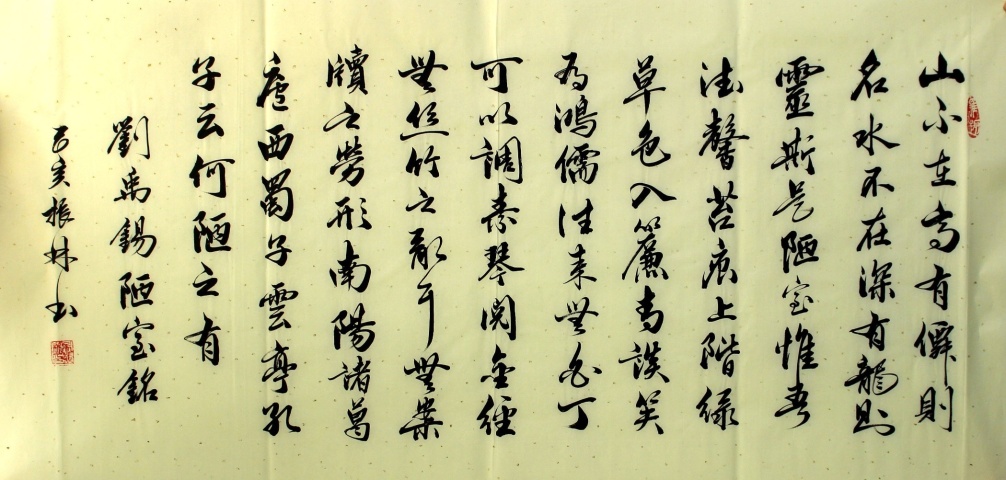 山不在高有僊則
名水不在深有龍則
靈斯是陋室惟吾
德馨苔痕上階綠
草色入簾青談笑
有鴻儒往來無白丁
可以調素琴閱金經
無絲竹之亂耳無案
牘之勞形南陽諸葛
廬西蜀子雲亭孔
子云何陋之有
劉禹錫陋室銘
己亥振林书